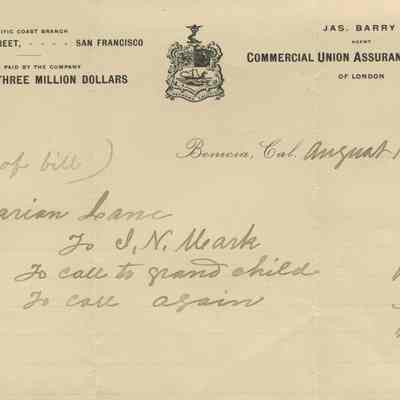 IFIC COAST BRANCH
REET, - - - - SAN FRANCISCO
PAID BY THE COMPANY
THREE MILLION DOLLARS
JAS. BARRY
AGENT
COMMERCIAL UNION ASSURAN
OF LONDON
of bill)
Benicia, Cal. August 1
arian Lane
To I. N. Mark
To call to grand child
To call again